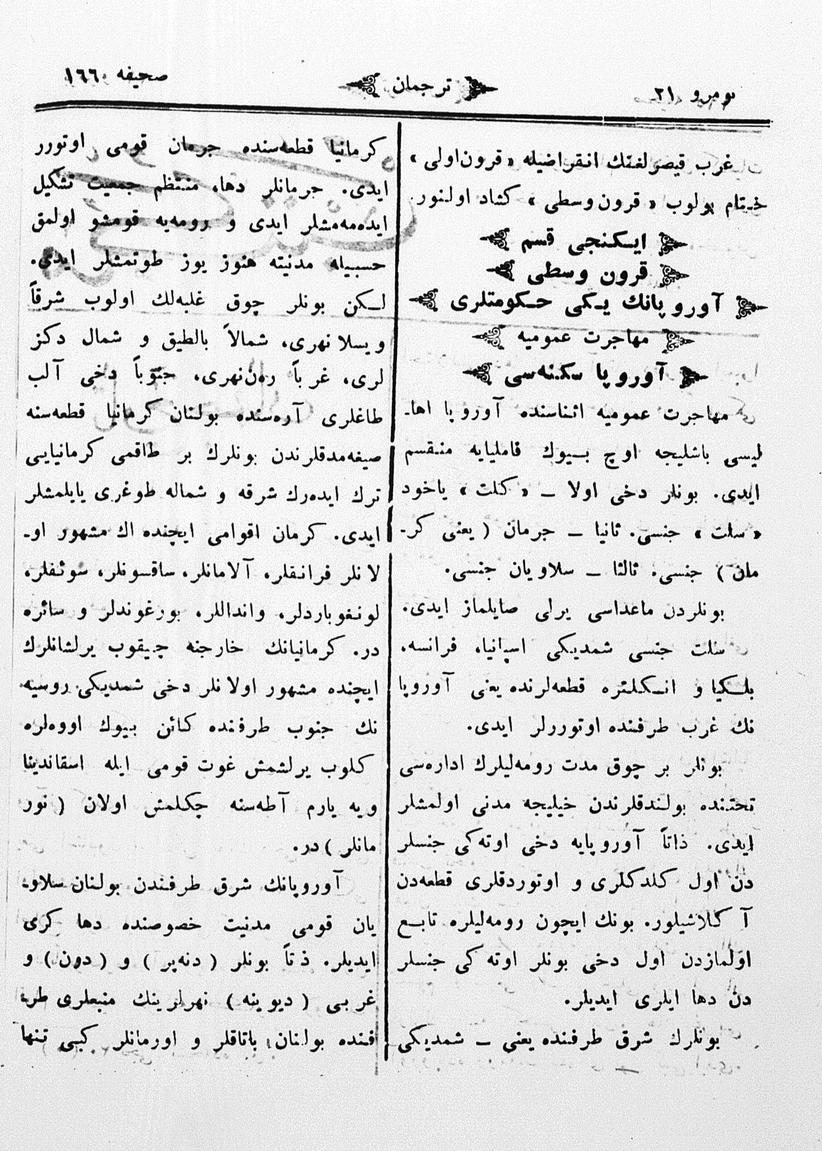 نومرو ٢١
ترجمان
صحيفه ١٦٦
غرب قيصرلغنك انقراضيله «قرون اولى»
ختام بولوب «قرون وسطى» كشاد اولنور.
ايكنجى قسم
قرون وسطى
آوروپانك يكى حكومتلرى
مهاجرت عموميه
آوروپا سكنه‌سى
مهاجرت عموميه اثناسنده آوروپا اها-
ليسى باشليجه اوچ بيوك فاميليايه منقسم
ايدى. بونلر دخى اولا – «كلت» ياخود
«سلت» جنسى. ثانيا – جرمان (يعنى كر-
مان) جنسى. ثالثا – سلاويان جنسى.
بونلردن ماعداسى يرلى صايلماز ايدى.
سلت جنسى شمديكى اسپانيا، فرانسه،
بلكيا و انكلتره قطعه‌لرنده يعنى آوروپا
نك غرب طرفنده اوتوررلر ايدى.
بونلر بر چوق مدت رومه‌ليلرك اداره‌سى
تحتنده بولندقلرندن خيليجه مدنى اولمشلر
ايدى. ذاتاً آوروپايه دخى اوته‌كى جنسلر
دن اول كلدكلرى و اوتوردقلرى قطعه‌دن
آكلاشيلور. بونك ايچون رومه‌ليلره تابع
اولمازدن اول دخى بونلر اوته‌كى جنسلر
دن دها ايلرى ايديلر.
بونلرك شرق طرفنده يعنى – شمديكى
كرمانيا قطعه‌سنده جرمان قومى اوتورر
ايدى. جرمانلر دها، منتظم جمعيت تشكيل
ايده‌مه‌مشلر ايدى و رومه‌يه قومشو اولمق
حسبيله مدنيته هنوز يوز طوتمشلر ايدى.
لكن بونلر چوق غلبه‌لك اولوب شرقاً
ويسلا نهرى، شمالاً بالطيق و شمال دكز
لرى، غرباً ره‌ن نهرى، جنوباً دخى آلپ
طاغلرى آره‌سنده بولنان كرمانيا قطعه‌سنه
صيغه‌مدقلرندن بونلرك بر طاقمى كرمانيايى
ترك ايده‌رك شرقه و شماله طوغرى يايلمشلر
ايدى. كرمان اقوامى ايچنده اك مشهور او-
لانلر فرانقلر، آلامانلر، ساقسونلر، سوئفلر،
لونغوباردلر، وانداللر، بورغوندلر و سائره
در. كرمانيانك خارجنه چيقوب يرلشانلرك
ايچنده مشهور اولانلر دخى شمديكى روسيه
نك جنوب طرفنده كائن بيوك اووه‌لره
كلوب يرلشمش غوت قومى ايله اسقاندينا
ويه يارم آطه‌سنه چكلمش اولان (نور
مانلر) در.
آوروپانك شرق طرفندن بولنان سلاو-
يان قومى مدنيت خصوصنده دها كرى
ايديلر. ذتاً بونلر (دنه‌پر) و (دون) و
غربى (ديوينه) نهرلرينك منبعلرى طر-
فنده بولنان باتاقلر و اورمانلر كبى تنها